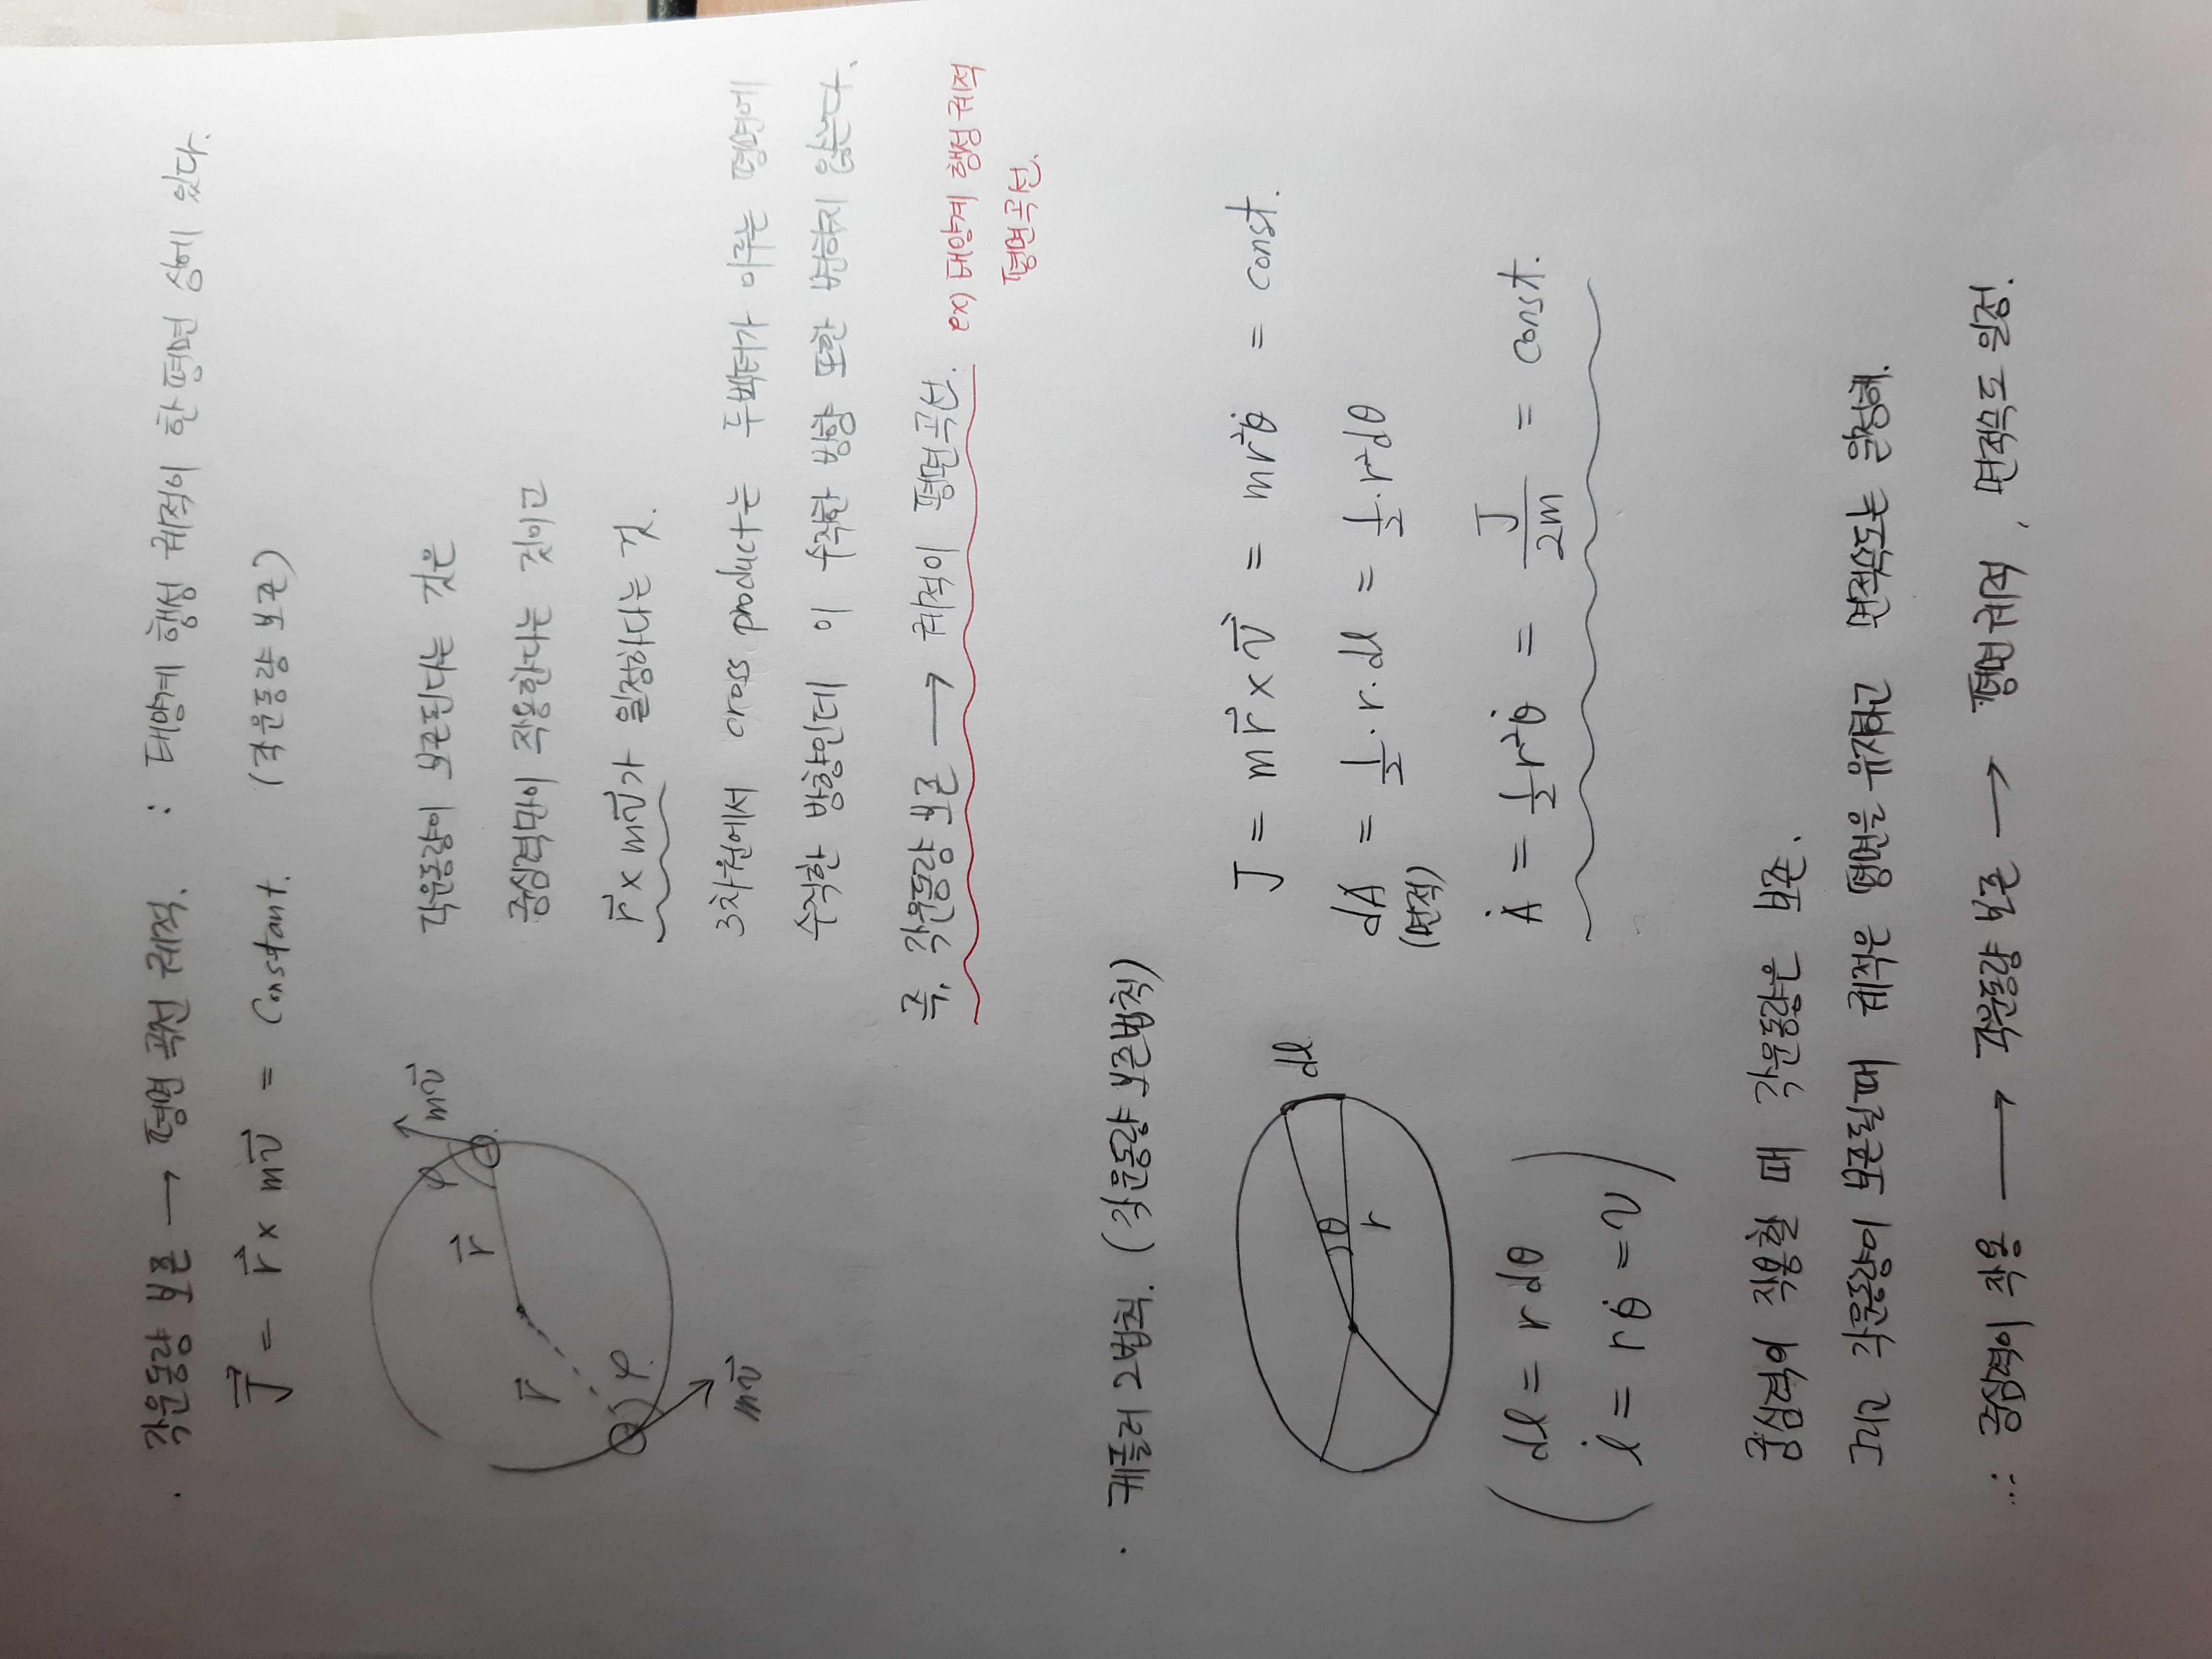 · 각운동량 보존 → 평면 곡선 궤적. : 태양계 행성 궤적이 한 평면 상에 있다.
J⃗ = r⃗ × mv⃗ = Constant. (각운동량 보존)
mv⃗
φ
r⃗
r⃗
φ
mv⃗
각운동량이 보존된다는 것은
중심력만이 작용한다는 것이고
r⃗ × mv⃗가 일정하다는 것.
3차원에서 cross product는 두벡터가 이루는 평면에
수직한 방향인데 이 수직한 방향 또한 변하지 않는다.
즉, 각운동량 보존 → 궤적이 평면곡선. ex) 태양계 행성 궤적
평면곡선.
· 케플러 2법칙. (각운동량 보존법칙)
dl
θ
r
J = mr⃗ × v⃗ = mr²θ̇ = const.
dA = 1/2 · r · dl = 1/2 · r²dθ
(면적)
Ȧ = 1/2 r²θ̇ = J/2m = const.
( dl = r dθ
l̇ = rθ̇ = v )
중심력이 작용할 때 각운동량은 보존.
그리고 각운동량이 보존될때 궤적은 평면을 유지하고 면적속도는 일정해.
∴ 중심력이 작용 → 각운동량 보존 → 평면궤적, 면적속도 일정.